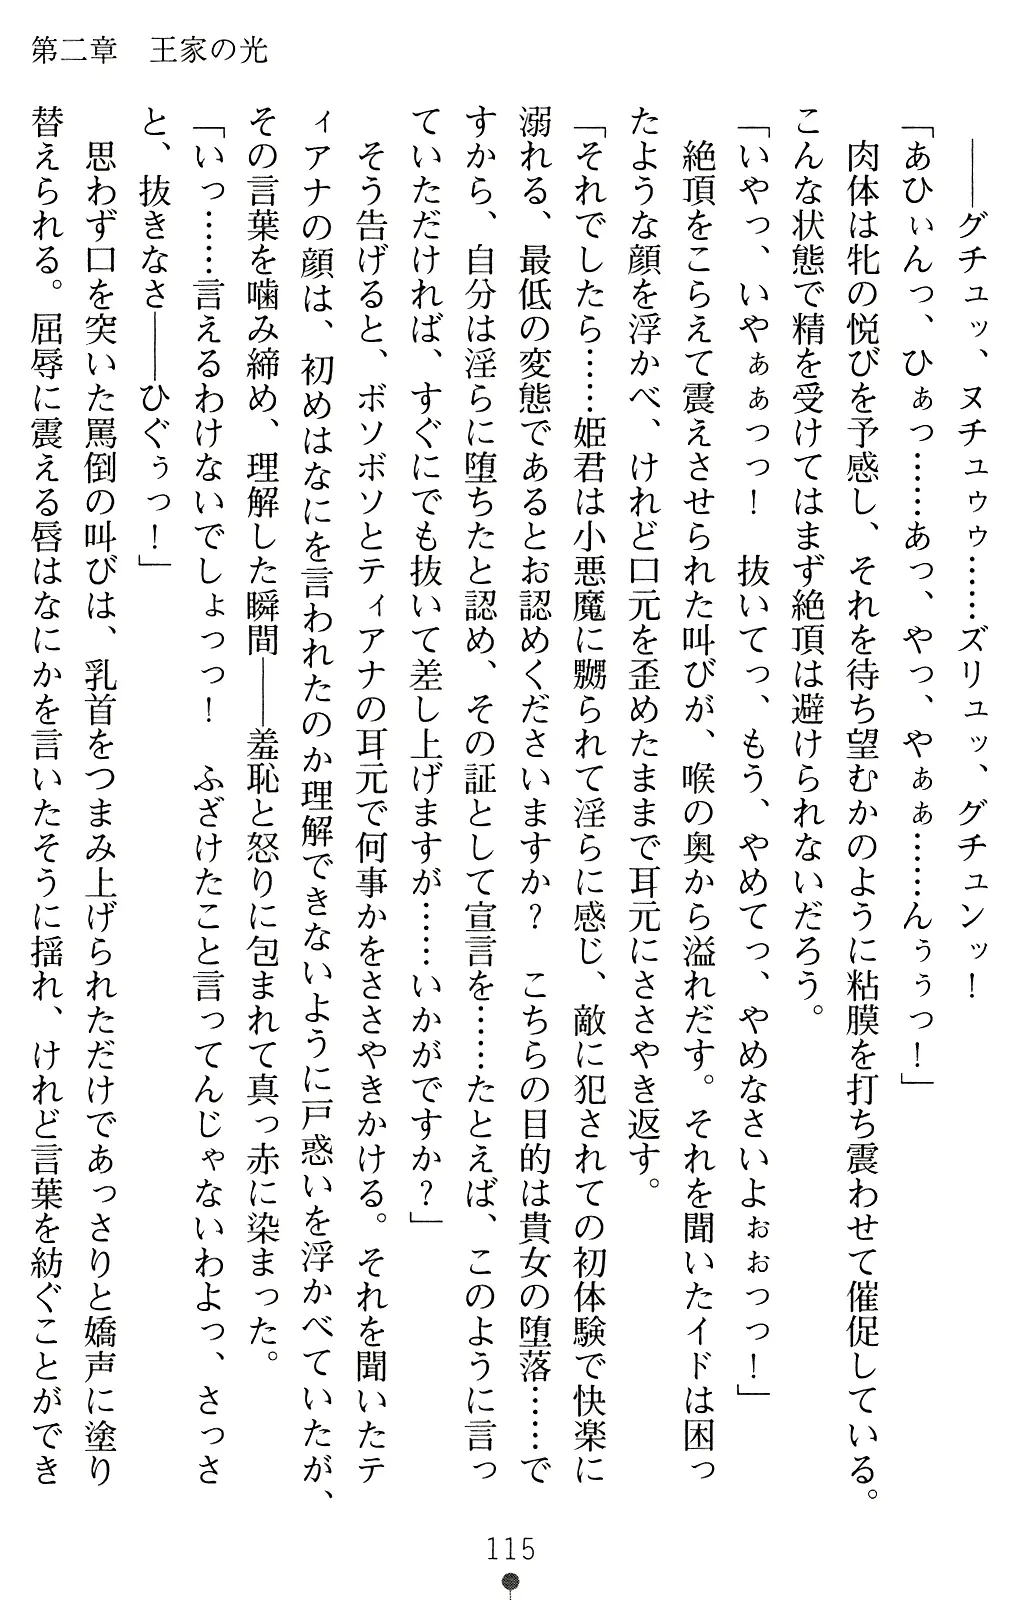 第二章　王家の光
――グチュッ、ヌチュゥゥ……ズリュッ、グチュンッ！
「あひぃんっ、ひぁっ……あっ、やっ、やぁぁ……んぅぅっ！」
肉体は牝の悦びを予感し、それを待ち望むかのように粘膜を打ち震わせて催促している。
こんな状態で精を受けてはまず絶頂は避けられないだろう。
「いやっ、いやぁぁっっ！　抜いてっ、もう、やめてっ、やめなさいよぉぉっっ！」
絶頂をこらえて震えさせられた叫びが、喉の奥から溢れだす。それを聞いたイドは困っ
たような顔を浮かべ、けれど口元を歪めたままで耳元にささやき返す。
「それでしたら……姫君は小悪魔に嬲られて淫らに感じ、敵に犯されての初体験で快楽に
溺れる、最低の変態であるとお認めくださいますか？　こちらの目的は貴女の堕落……で
すから、自分は淫らに堕ちたと認め、その証として宣言を……たとえば、このように言っ
ていただければ、すぐにでも抜いて差し上げますが……いかがですか？」
そう告げると、ボソボソとティアナの耳元で何事かをささやきかける。それを聞いたテ
ィアナの顔は、初めはなにを言われたのか理解できないように戸惑いを浮かべていたが、
その言葉を噛み締め、理解した瞬間――羞恥と怒りに包まれて真っ赤に染まった。
「いっ……言えるわけないでしょっっ！　ふざけたこと言ってんじゃないわよっ、さっさ
と、抜きなさ――ひぐぅっ！」
思わず口を突いた罵倒の叫びは、乳首をつまみ上げられただけであっさりと嬌声に塗り
替えられる。屈辱に震える唇はなにかを言いたそうに揺れ、けれど言葉を紡ぐことができ
115